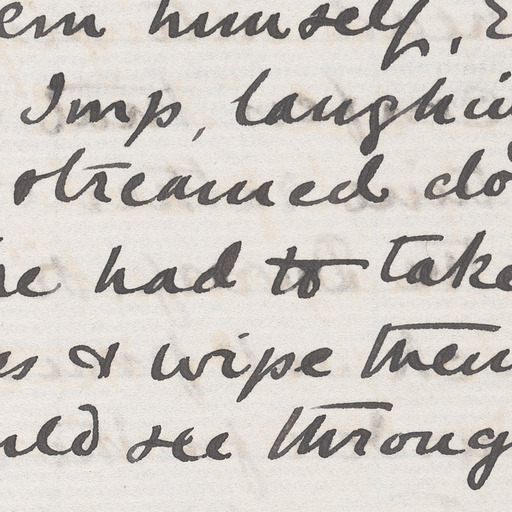 em himself,
Imp, laughi
streamed do
he had to take
es & wipe them
uld see throug